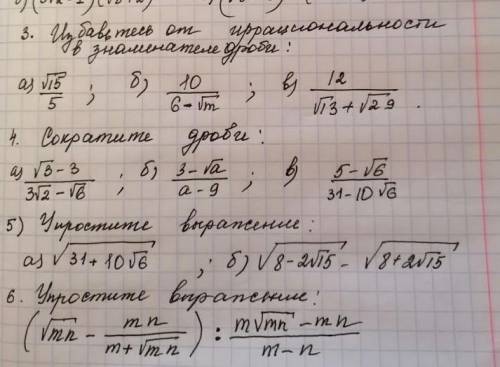 3. Избавьтесь от иррациональности
в знаменателе дроби:
а) √15/5 ; б) 10/(6-√m) ; в) 12/(√13+√29) .
4. Сократите дроби:
а) (√3-3)/(3√2-√6) ; б) (3-√a)/(a-9) ; в) (5-√6)/(31-10√6)
5) Упростите выражение:
а) √(31+10√6) ; б) √(8-2√15) - √(8+2√15)
6. Упростите выражение:
(√mn - mn/(m+√mn)) : (m√mn-mn)/(m-n)